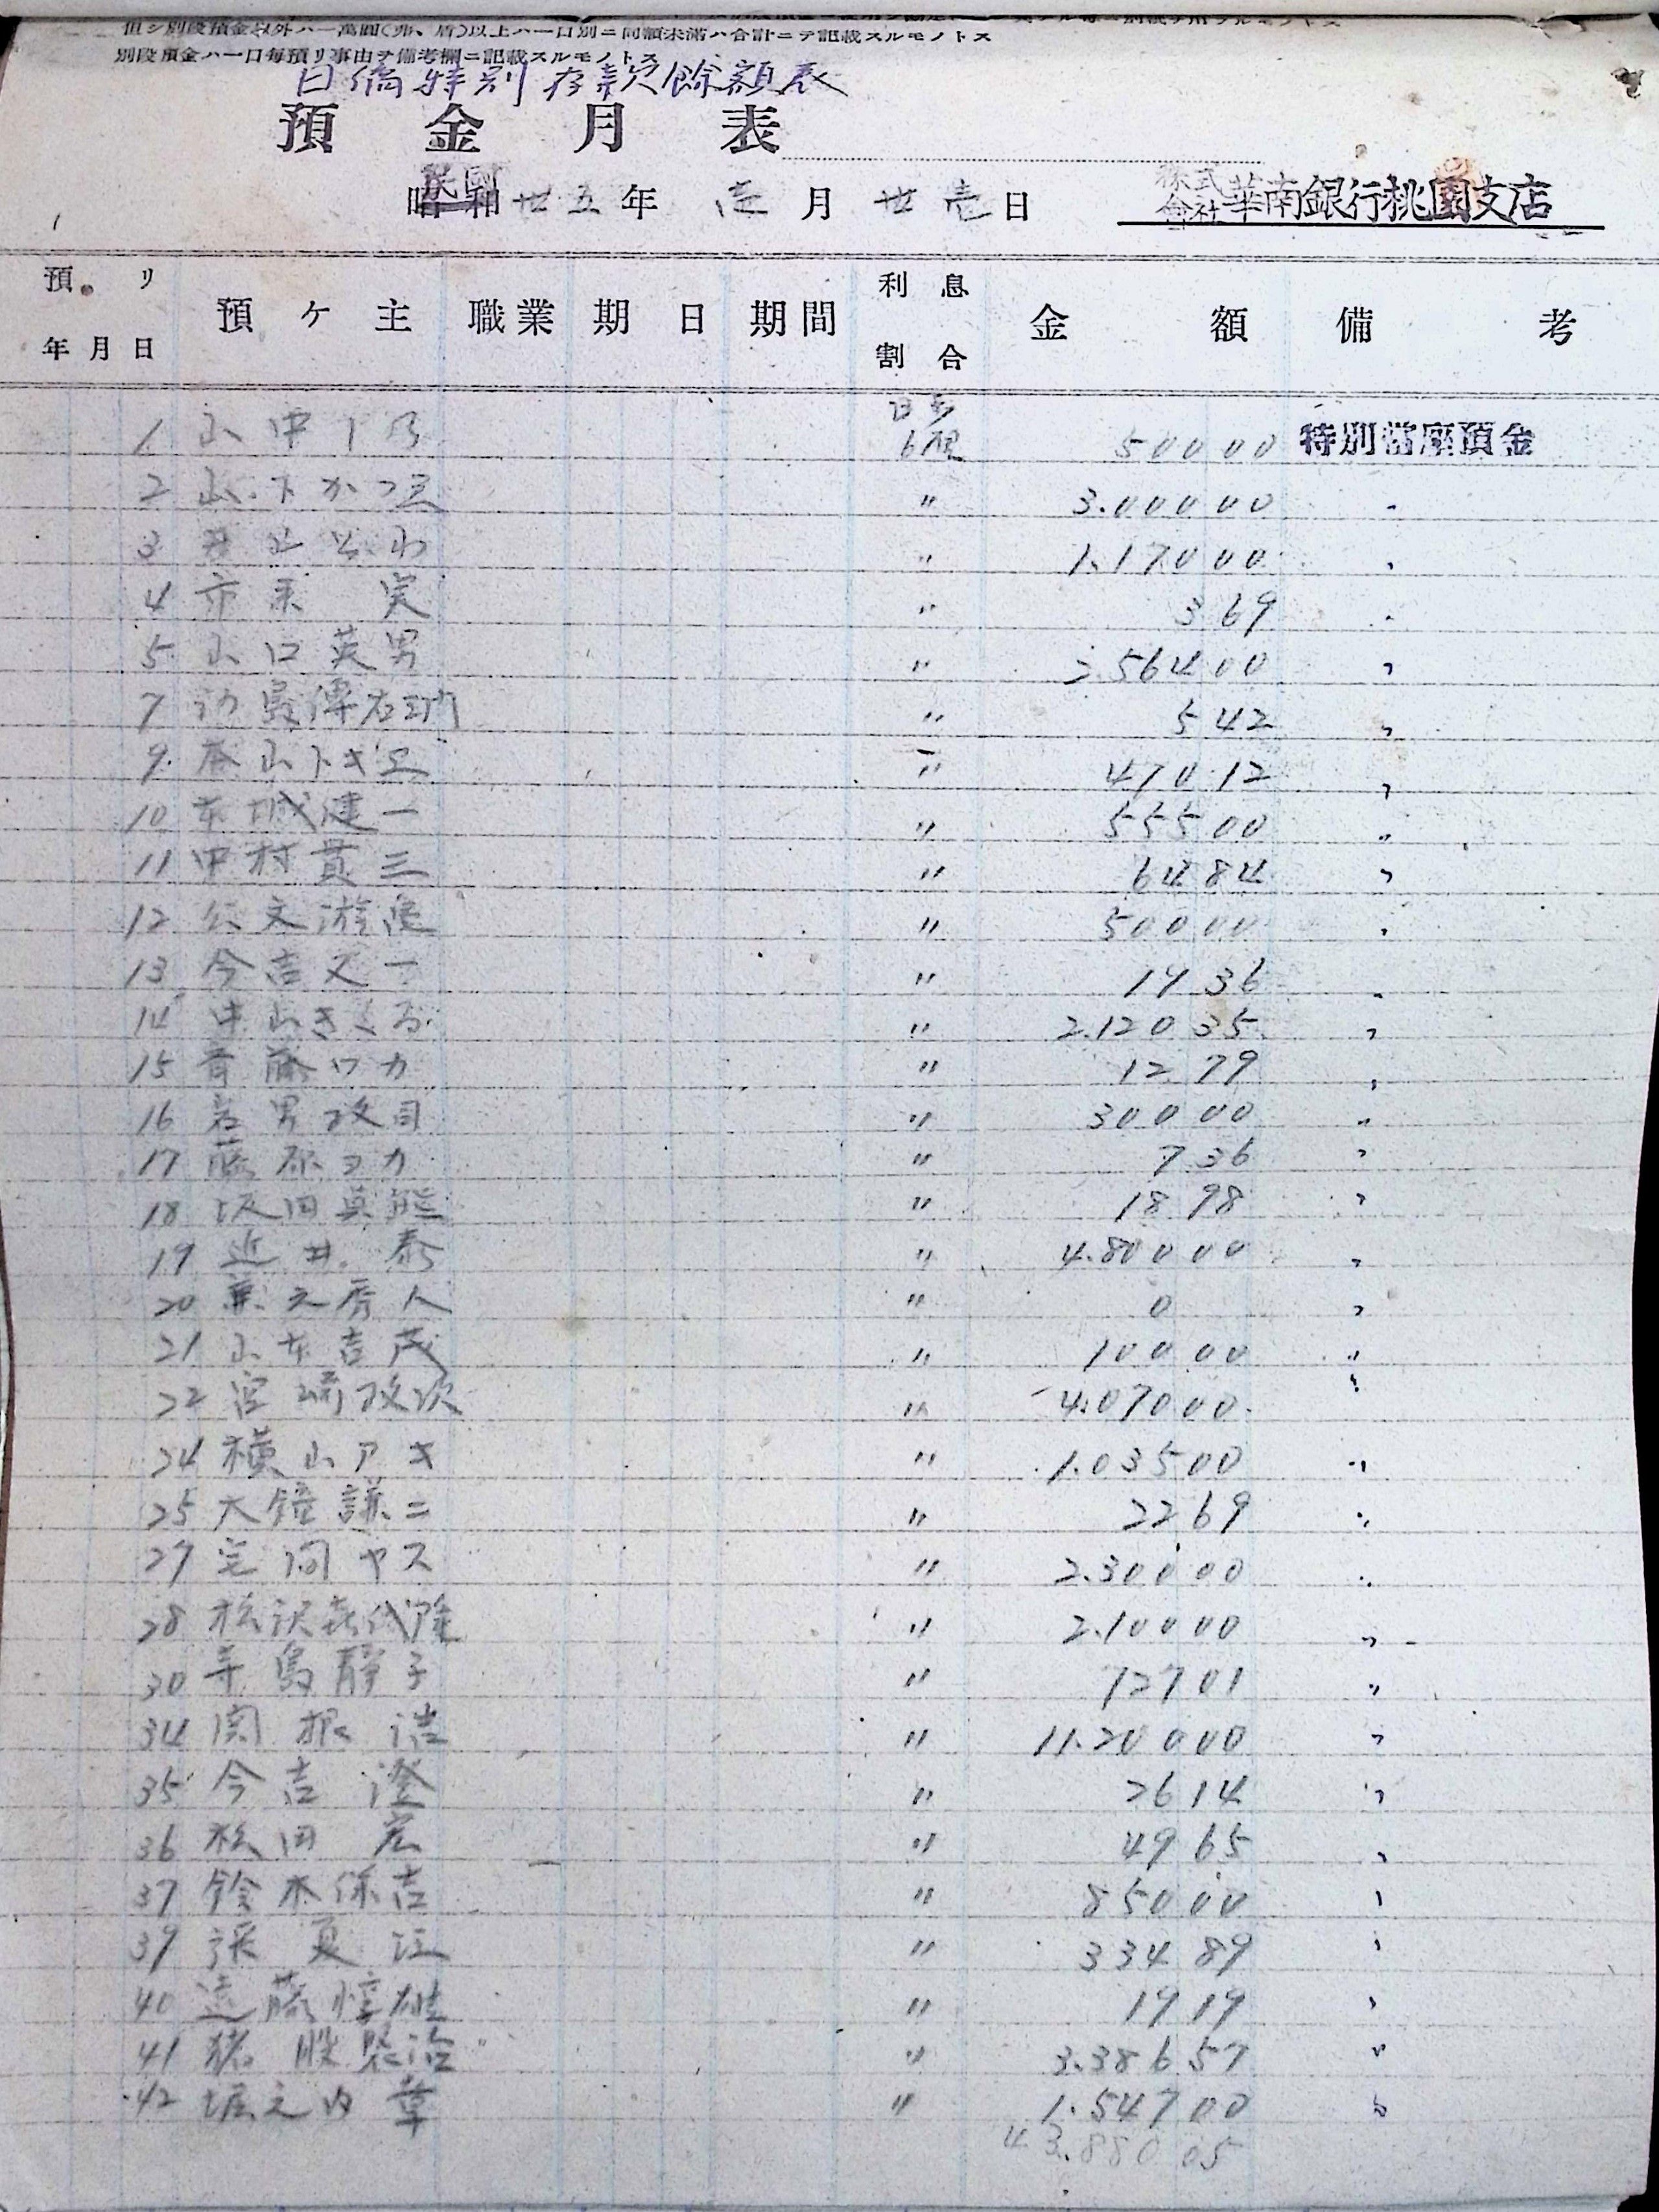 但シ別段預金以外ハ一萬圓(弗、盾)以上ハ一口別ニ同額未滿ハ合計ニテ記載スルモノトス
別段預金ハ一口每預リ事由ヲ備考欄ニ記載スルモノトス
日僑特別存款餘額表
預金月表
民國
昭和 卅五年 壱月 卅壱日 株式會社華南銀行桃園支店
預リ年月日 預ケ主 職業 期日 期間 利息割合 金額 備考
日歩
1 山中 6厘 500 00 特別當座預金
2 山下かつ " 3.000 00 "
3 " 1.170 00 "
4 市来 実 " 3 69 "
5 山口英男 " 2.564 00 "
7 島傳右衛門 " 5 42 "
9 山トキヱ " 470 12 "
10 城健一 " 555 00 "
11 中村貫三 " 64 84 "
12 公文 " 500 00 "
13 今吉又一 " 19 36 "
14 中山きくゑ " 2.120 35 "
15 斉藤ワカ " 12 79 "
16 岩男政司 " 300 00 "
17 藤原ヨカ " 7 36 "
18 坂田真熊 " 18 98 "
19 近井 泰 " 4.800 00 "
20 人 " 0 "
21 山本吉茂 " 100 00 "
22 宮崎政次 " 4.070 00 "
24 横山アキ " 1.035 00 "
25 大鐘謙二 " 22 69 "
27 宅間ヤス " 2.300 00 "
28 松沢喜代隆 " 2.100 00 "
30 寺島静子 " 127 01 "
34 関根 浩 " 11.200 00 "
35 今吉 澄 " 26 14 "
36 松田 宏 " 49 65 "
37 鈴木保吉 " 850 00 "
39 張夏江 " 334 89 "
40 遠藤惇雄 " 19 19 "
41 猪股賢治 " 3.386 57 "
42 堀之内 章 " 1.547 00 "
43.880 05